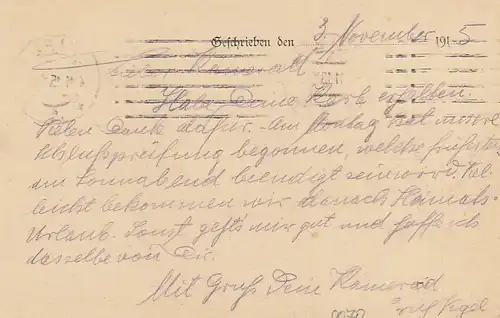 Geschrieben den 3. November 1915
Lieber Kamerad!
Habe Deine Karte erhalten.
Vielen Dank dafür. Am Montag hat unsere
Schlußprüfung begonnen, welche frühstens
am Sonnabend beendigt sein wird. Viel-
leicht bekommen wir danach Heimats-
Urlaub. Sonst geht's mir gut und hoffe ich
dasselbe von Dir.
Mit Gruß Dein Kamerad